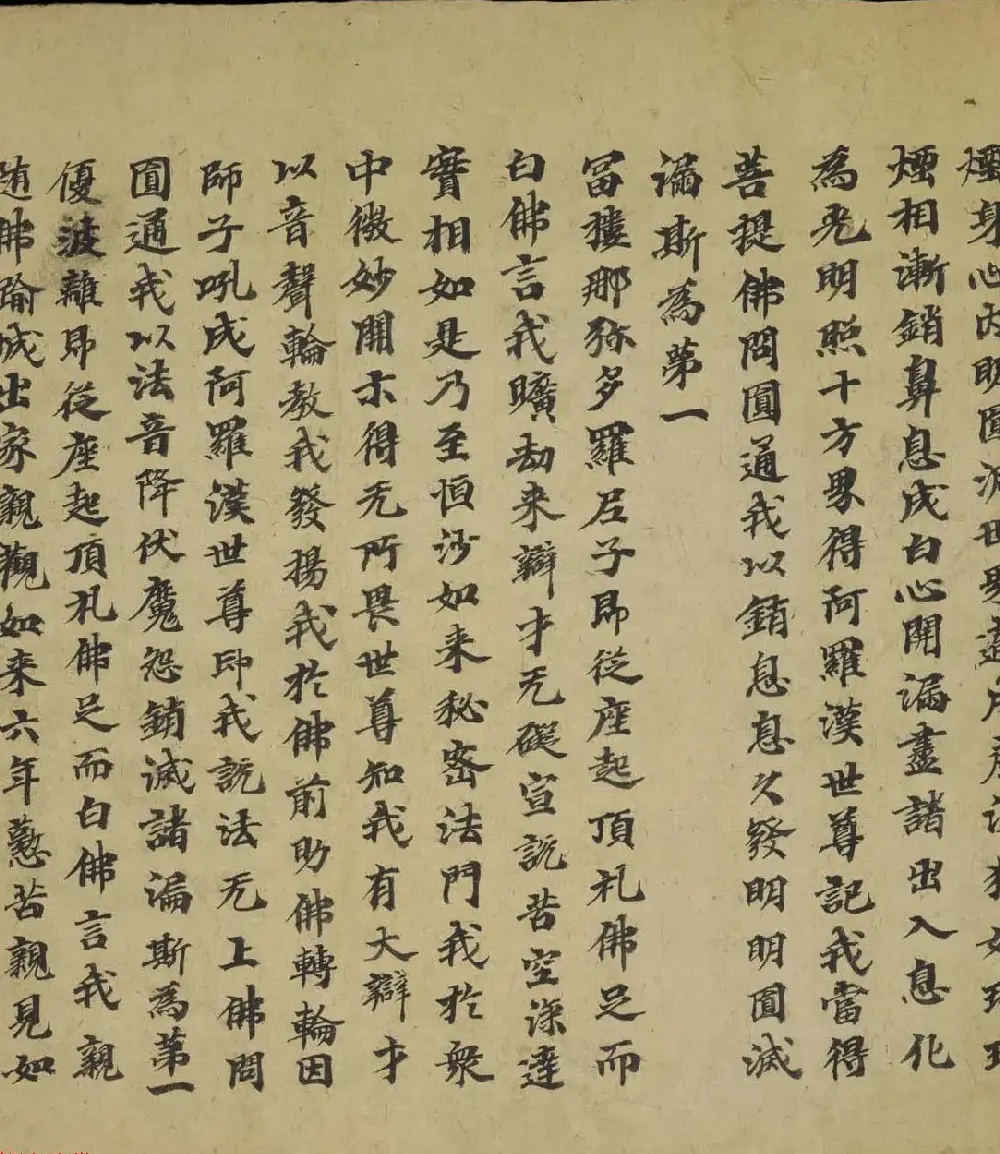 煙身心內明圓洞世界遍成虛淨猶如琉璃
煙相漸銷鼻息成白心開漏盡諸出入息化
為光明照十方界得阿羅漢世尊記我當得
菩提佛問圓通我以銷息息久發明明圓滅
漏斯為第一
富樓那弥多羅尼子即從座起頂礼佛足而
白佛言我曠劫来辯才无礙宣説苦空深達
實相如是乃至恒沙如来秘密法門我於衆
中微妙開示得无所畏世尊知我有大辯才
以音聲輪教我發揚我於佛前助佛轉輪因
師子吼成阿羅漢世尊印我説法无上佛問
圓通我以法音降伏魔怨銷滅諸漏斯為第一
優波離即從座起頂礼佛足而白佛言我親
随佛踰城出家親觀如来六年懃苦親見如